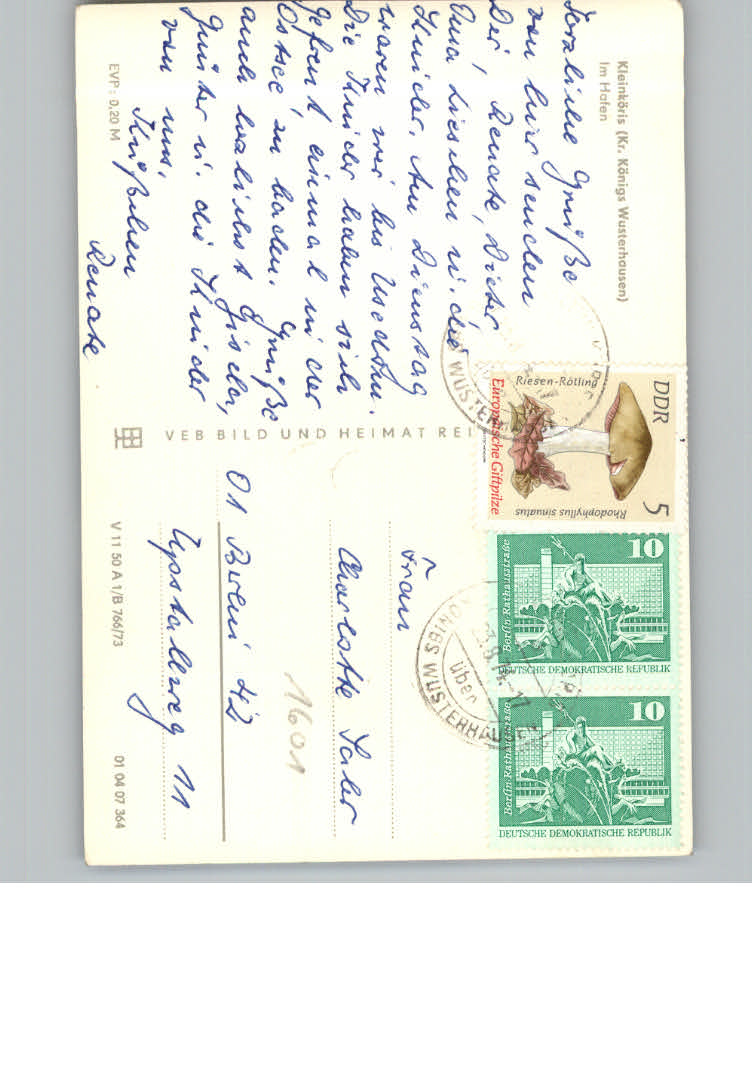 Kleinköris (Kr. Königs Wusterhausen)
Im Hafen
Herzliche Grüße
von hier senden
Dir, Renate, Dieter,
Oma Lieschen u. die
Kinder. Am Dienstag
waren wir bis Usedom.
Die Kinder haben sich
gefreut einmal in der
Ostsee zu baden. Grüße
auch herzlichst Gisela,
Günter u. die Kinder
von uns.
Küßchen
Renate
EVP: 0,20 M
VEB BILD UND HEIMAT REI
V 11 50 A 1/B 766/73
01 04 07 364
DDR
5
Riesen-Rötling
Rhodophyllus sinuatus
Europäische Giftpilze
10
Berlin·Rathausstraße
DEUTSCHE DEMOKRATISCHE REPUBLIK
10
Berlin·Rathausstraße
DEUTSCHE DEMOKRATISCHE REPUBLIK
WUSTERHAUSEN
KÖNIGS WUSTERHAUSEN
über
Frau
Charlotte
1601
01 Berlin 42
11